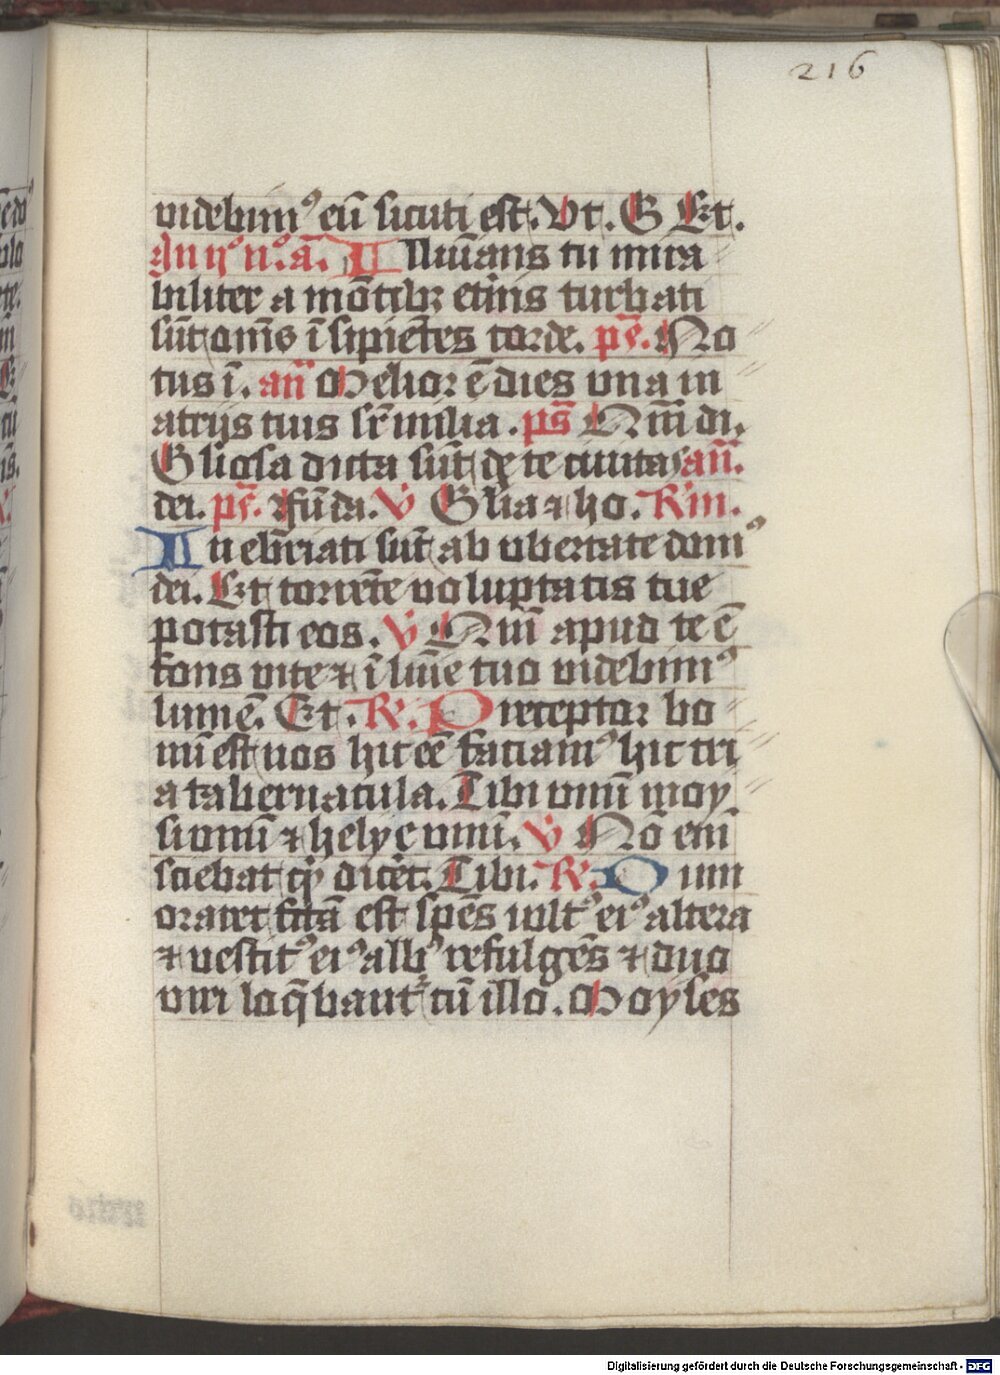 216
videbim⁹ eū sicuti est. Vt. G Et.
In ij⁹ n⁹. ā. Illuīans tu mira
biliter a mōtibꝫ etīns turbati
sūt om̄s īsipiētes corde. ps̄. No
tus ī. an̄ Melior ē dies vna in
atrijs tuis sr̄ milia. ps̄ Qm̄ di.
Gliosa dicta sūt de te ciuitas an̄.
dei. ps̄. Fūda. V Glīa ⁊ ho. Rm.
Inebriati sūt ab vbertate dom⁹
dei. Et torrēte voluptatis tue
potasti eos. V Qm̄ apud te ē
fons vite ⁊ ī lūīe tuo videbim⁹
lumē. Et. R. Preceptor bo
nū est nos hic eē faciam⁹ hic tri
a tabernacula. Tibi vnū moy
si vnū ⁊ helye vnū. V Nō em̄
sciebat qͥd dicēt. Tibi. R. Dum
oraret fctā est spēs vult⁹ ei⁹ altera
⁊ vestit⁹ ei⁹ alb⁹ refulgēs ⁊ duo
viri loq̄bant᷑ cū illo. Moyses
Digitalisierung gefördert durch die Deutsche Forschungsgemeinschaft - DFG